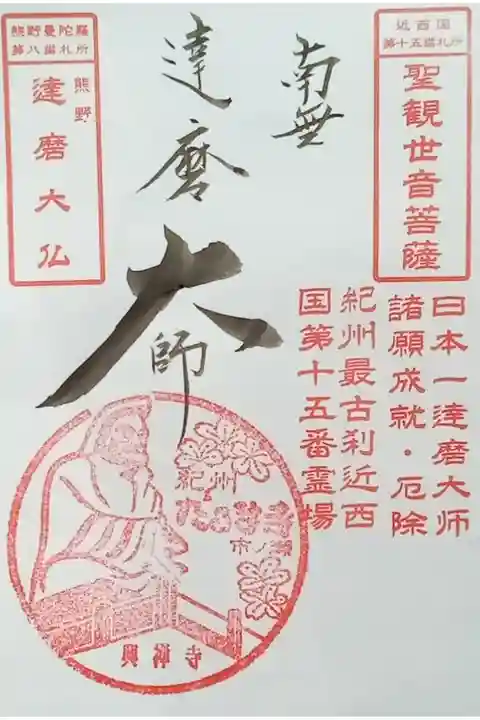 近西国
第十五番札所
聖観世音菩薩
日本一達磨大师
諸願成就・厄除
紀州最古刹近西
国第十五番霊場
南無
達磨大師
熊野曼陀羅
第八番札所
熊野
達磨大仏
紀州
だるま寺
市ノ瀬
興禅寺